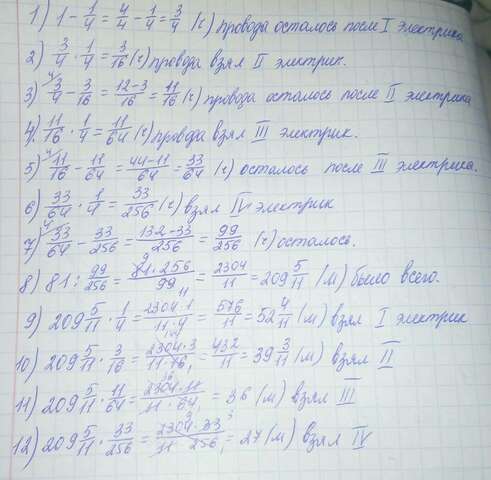 1) 1 - 1/4 = 4/4 - 1/4 = 3/4 (ч) провода осталось после I электрика
2) 3/4 · 1/4 = 3/16 (ч) провода взял II электрик.
3) 3/4 - 3/16 = 12-3/16 = 11/16 (ч) провода осталось после II электрика
4) 11/16 · 1/4 = 11/64 (ч) провода взял III электрик.
5) 11/16 - 11/64 = 44-11/64 = 33/64 (ч) осталось после III электрика.
6) 33/64 · 1/4 = 33/256 (ч) взял IV электрик
7) 33/64 - 33/256 = 132-33/256 = 99/256 (ч) осталось.
8) 81 : 99/256 = 81·256/99 = 2304/11 = 209 5/11 (м) было всего.
9) 209 5/11 · 1/4 = 2304·1/11·4 = 576/11 = 52 4/11 (м) взял I электрик
10) 209 5/11 · 3/16 = 2304·3/11·16 = 432/11 = 39 3/11 (м) взял II
11) 209 5/11 · 11/64 = 2304·11/11·64 = 36 (м) взял III
12) 209 5/11 · 33/256 = 2304·33/11·256 = 27 (м) взял IV